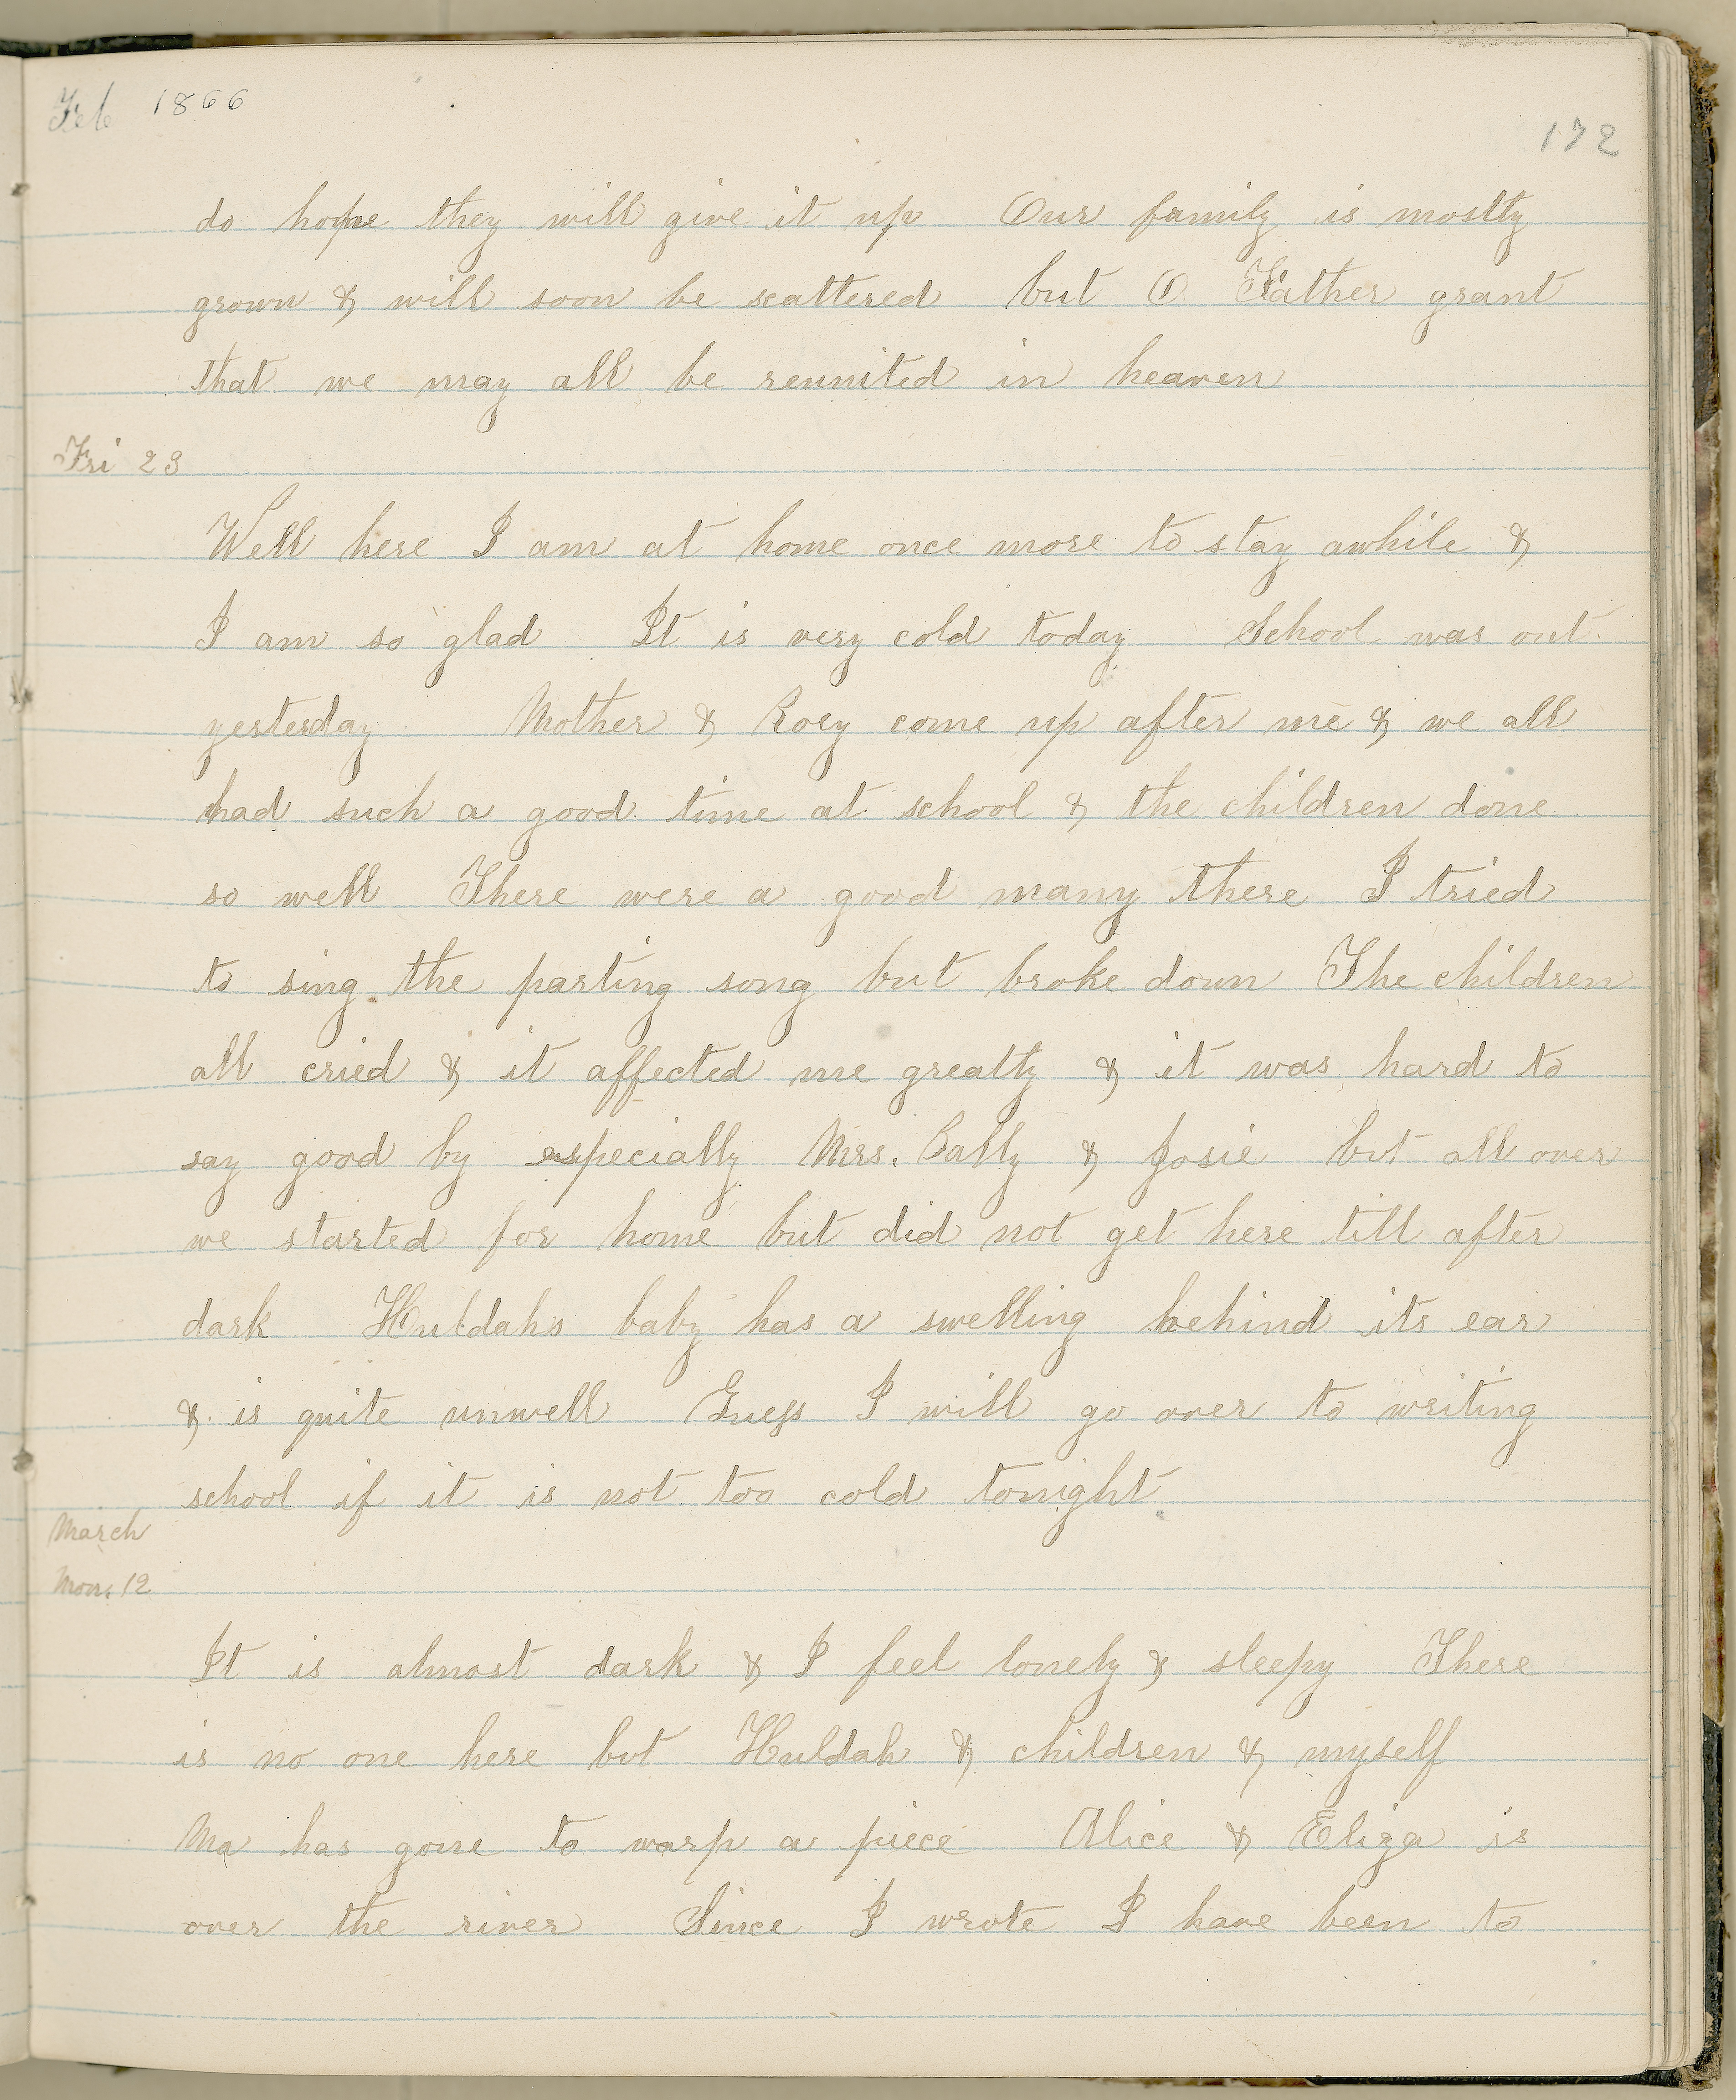 Feb 1866
172
do hope they will give it up Our family is mostly
grown & will soon be scattered but O Father grant
that we may all be reunited in heaven
Fri 23
Well here I am at home once more to stay awhile &
I am so glad It is very cold today School was out
yesterday Mother & Rory come up after me & we all
had such a good time at school & the children done
so well There were a good many there I tried
to sing the parting song but broke down The children
all cried & it affected me greatly & it was hard to
say good by especially Mrs. & Josie but all over
we started for home but did not get here till after
dark Huldahs baby has a swelling behind its ear
& is quite unwell Guess I will go over to writing
school if it is not too cold tonight
March
Mon. 12
It is almost dark & I feel lonely & sleepy There
is no one here but Huldah & children & myself
Ma has gone to warp a piece Alice & Eliza is
over the river Since I wrote I have been to